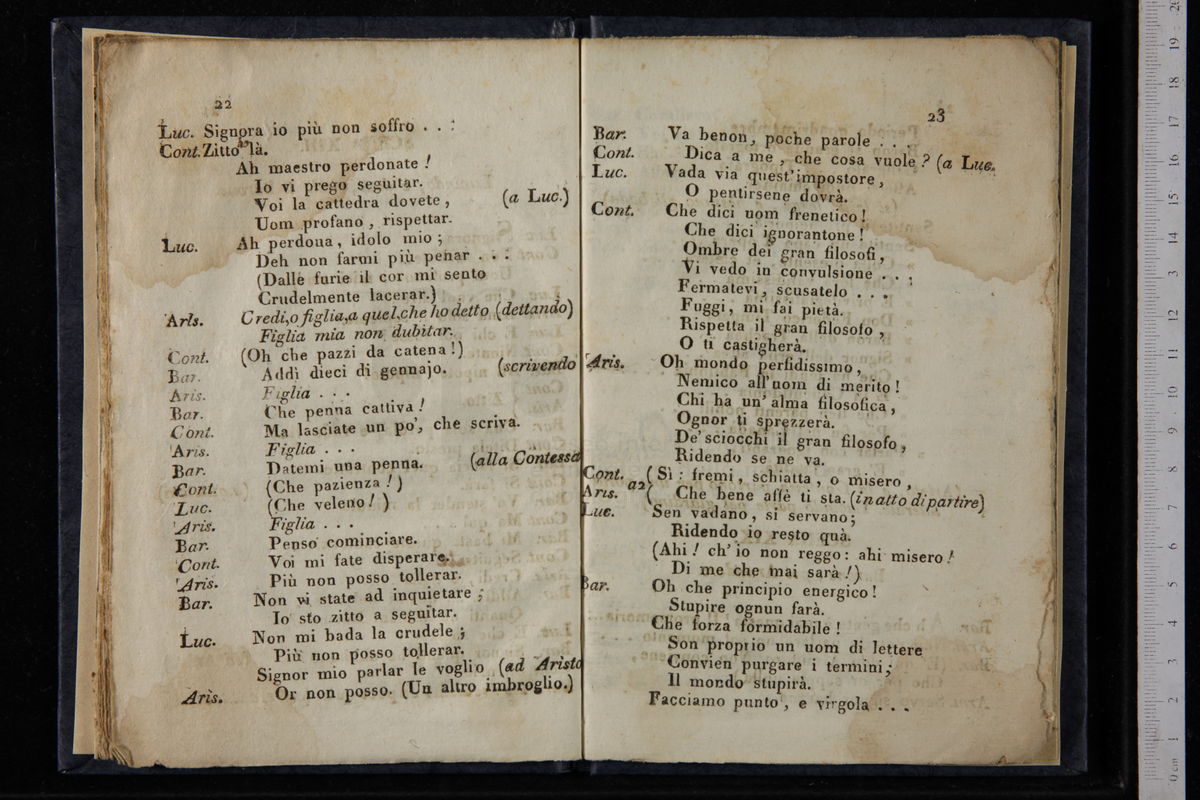 22
Luc. Signora io più non soffro . . .
Cont. Zitto là.
Ah maestro perdonate !
Io vi prego seguitar.
Voi la cattedra dovete , (a Luc.)
Uom profano , rispettar.
Luc. Ah perdona , idolo mio ;
Deh non farmi più penar . . .
(Dalle furie il cor mi sento
Crudelmente lacerar.)
Aris. Credi,o figlia,a quel,che ho detto (dettando)
Figlia mia non dubitar.
Cont. (Oh che pazzi da catena !)
Bar. Addì dieci di gennajo. (scrivendo
Aris. Figlia . . .
Bar. Che penna cattiva !
Cont. Ma lasciate un po', che scriva.
Aris. Figlia . . .
Bar. Datemi una penna. (alla Contessa
Cont. (Che pazienza ! )
Luc. (Che veleno ! )
Aris. Figlia . . .
Bar. Penso cominciare.
Cont. Voi mi fate disperare.
Aris. Più non posso tollerar.
Bar. Non vi state ad inquietare ;
Io sto zitto a seguitar.
Luc. Non mi bada la crudele ;
Più non posso tollerar.
Signor mio parlar le voglio (ad Aristo
Aris. Or non posso. (Un altro imbroglio.)
23
Bar. Va benon, poche parole . . .
Cont. Dica a me , che cosa vuole ? (a Luc.
Luc. Vada via quest'impostore ,
O pentirsene dovrà.
Cont. Che dici uom frenetico !
Che dici ignorantone !
Ombre dei gran filosofi ,
Vi vedo in convulsione . . .
Fermatevi, scusatelo . . .
Fuggi, mi fai pietà.
Rispetta il gran filosofo ,
O ti castigherà.
Aris. Oh mondo perfidissimo ,
Nemico all'uom di merito !
Chi ha un' alma filosofica ,
Ognor ti sprezzerà.
De' sciocchi il gran filosofo ,
Ridendo se ne va.
Cont. a2 ( Sì : fremi , schiatta , o misero ,
Aris. ( Che bene affè ti sta. (in atto di partire)
Luc. Sen vadano , si servano ;
Ridendo io resto quà.
(Ahi ! ch' io non reggo : ahi misero !
Di me che mai sarà !)
Bar. Oh che principio energico !
Stupire ognun farà.
Che forza formidabile !
Son proprio un uom di lettere
Convien purgare i termini ;
Il mondo stupirà.
Facciamo punto , e virgola . . .